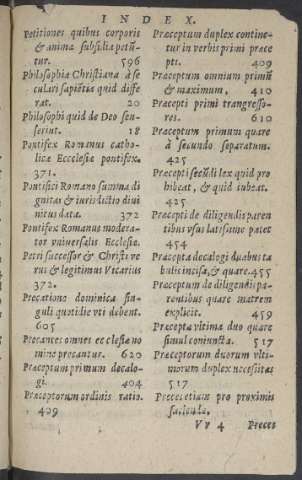 INDEX.
Petitiones quibus corporis
& anima subsidia petũ-
tur. 596
Philosophia Christiana à se
culari sapiẽtia quid diffe
rat. 20
Philosophi quid de Deo sen-
serint. 18
Pontifex Romanus catho-
licæ Ecclesiæ pontifex.
371.
Pontifici Romano summa di
gnitas & iurisdictio diui
nitus data. 372
Pontifex Romanus modera-
tor vniuersalis Ecclesiæ.
Petri successor & Christi ve
rus & legitimus Vicarius
372.
Precatione dominica sin-
guli quotidie vti debent.
605
Precantes omnes ecclesiæ no
mine precantur. 620
Præceptum primum decalo-
gi. 404
Præceptorum ordinis ratio.
409
Præceptum duplex contine-
tur in verbis primi præce
pti. 409
Præceptum omnium primũ
& maximum. 410
Præcepti primi trangresso-
res. 610
Præceptum primum quare
à secundo separatum.
425
Præcepti secũdi lex quid pro
hibeat, & quid iubeat.
425
Præcepti de diligendis paren
tibus vsus latissime patet
454
Præcepta decalogi duabus ta
bulis incisa, & quare. 455
Præceptum de diligendis pa-
rentibus quare matrem
explicit. 459
Præcepta vltima duo quare
simul coniuncta. 517
Præceptorum duorum vlti-
morum duplex necessitas
517
Preces etiam pro proximis
faciendæ.
Vv 4 Preces